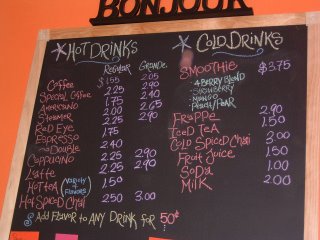 BONJOUR
HOT DRINKS
REGULAR GRANDE
COFFEE $1.55 2.05
SPECIAL COFFEE 2.25 2.90
AMERICANO 1.75 2.40
STEAMER 2.00 2.65
RED EYE 2.25 2.90
ESPRESSO 1.75
DOUBLE 2.40
CAPPUCINO 2.25 2.90
LATTE 2.25 2.90
HOT TEA (VARIETY of FLAVORS) 1.50
HOT SPICED CHAI 2.50 3.00
COLD DRINKS
SMOOTHIE $3.75
4 BERRY BLEND
STRAWBERRY
MANGO
PEACH/PEAR
FRAPPE 2.90
ICED TEA 1.50
COLD SPICED CHAI 3.00
FRUIT JUICE 1.50
SODA 1.00
MILK 2.00
ADD FLAVOR TO ANY DRINK FOR 50¢